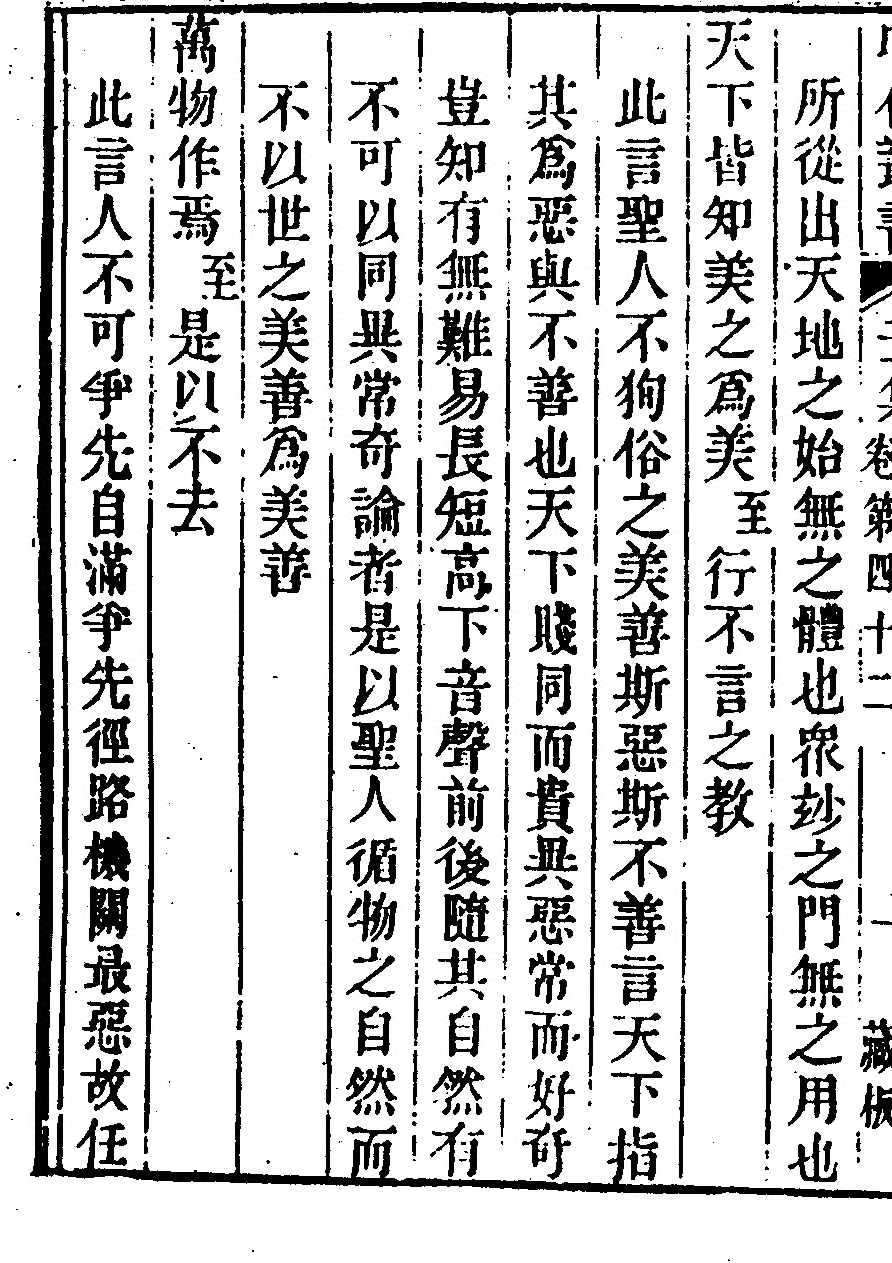 集卷第四十二
一
藏板
所從出天地之始無之體也衆玅之門無之用也
天下皆知美之爲美至行不言之教
此言聖人不狥俗之美善斯惡斯不善言天下指
其爲惡與不善也天下賤同而貴異惡常而好奇
豈知有無難易長短高下音聲前後隨其自然有
不可以同異常奇論者是以聖人循物之自然而
不以世之美善爲美善
萬物作焉至是以不去
此言人不可爭先自滿爭先徑路機關最惡故任